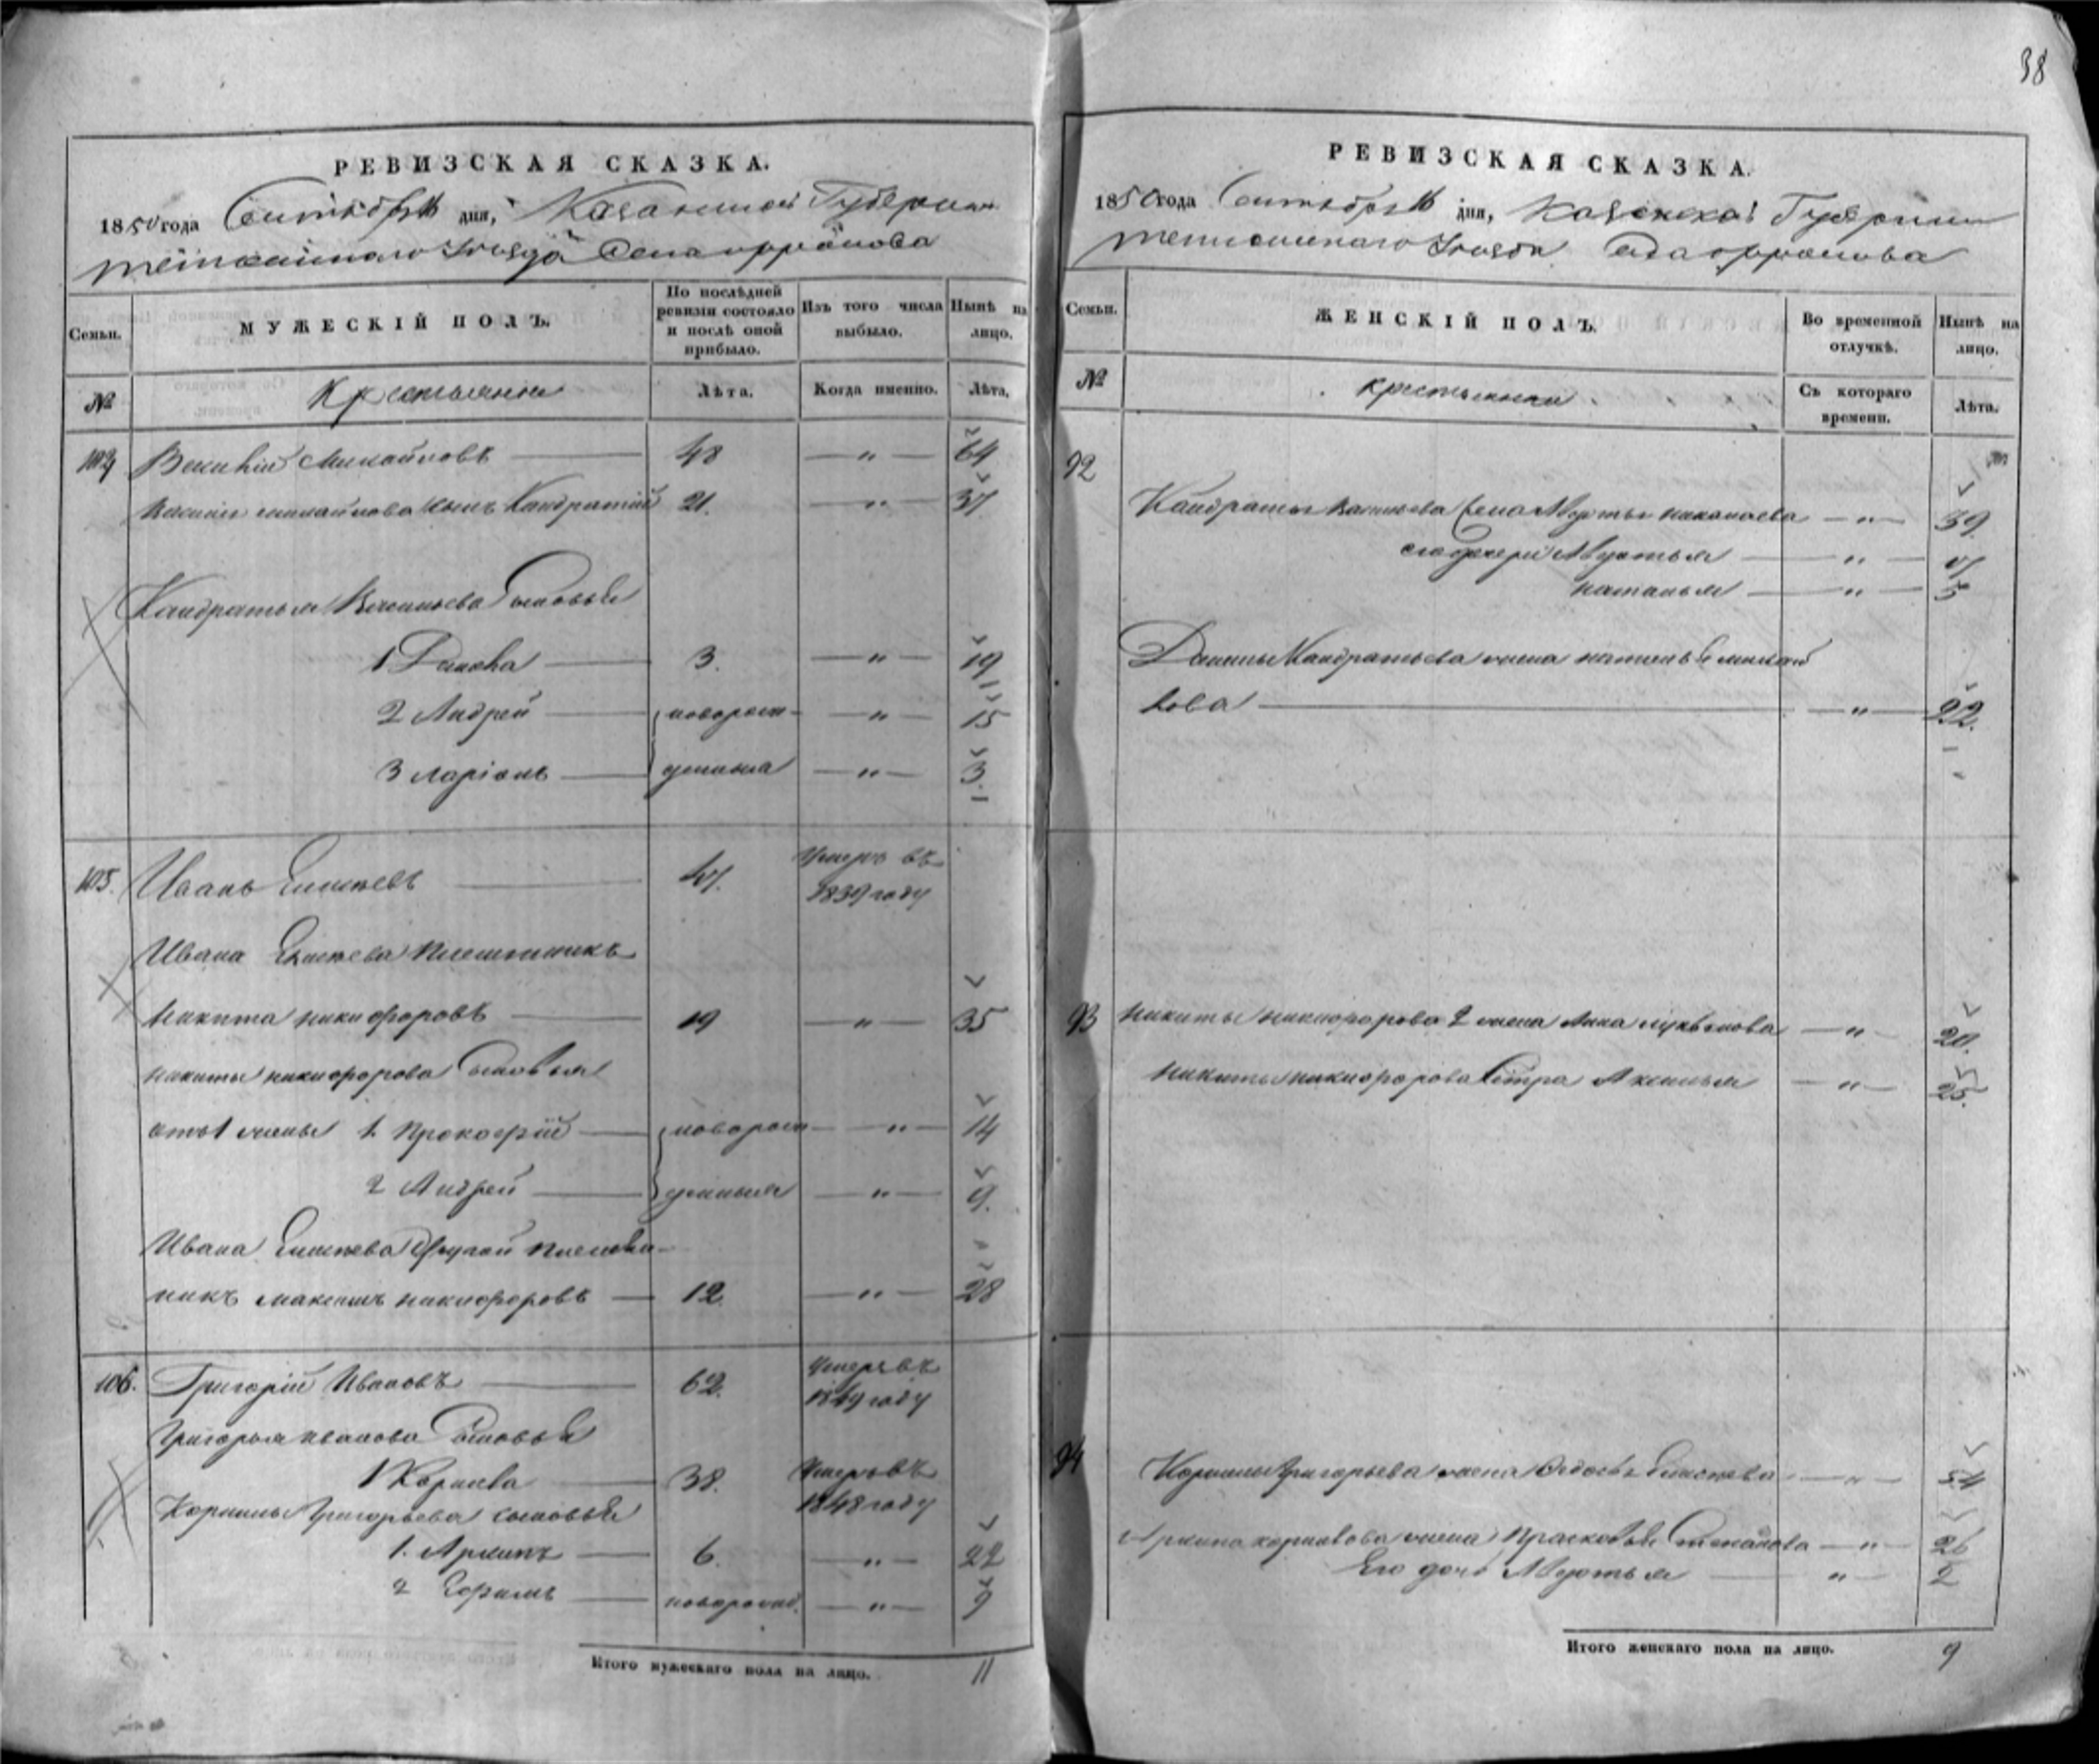 38
РЕВИЗСКАЯ СКАЗКА.
1850 года Сентября дня, Казанской Губернии
Тетюшскаго Уезда Села
Семьи.
МУЖЕСКІЙ ПОЛЪ.
По послѣдней ревизіи состояло и послѣ оной прибыло.
Изъ того числа выбыло.
Нынѣ на лицо.
№
Крестьяне
Лѣта.
Когда именно.
Лѣта.
104 Василій Михайловъ 48 — " — 64
Василья Михайлова сынъ Кандратий 21. " 37
Кандратья Васильева Сыновья
1 Данила 3. — " — 19
2 Андрей новорож — " — 15
3 Ларіонъ денныя — " — 3
105. Иванъ Елисеевъ 47. Умеръ въ
1839 году
Ивана Елисеева Племянникъ
Никита Никифоровъ 19 — " — 35
Никиты Никифорова Сыновья
отъ 1 жены 1. Прокофій новорож — " — 14
2 Андрей денныя — " — 9.
Ивана Елисеева Другой племян-
никъ Максимъ Никифоровъ — 12 — " — 28
106. Григорій Ивановъ 62. Умеръ въ
1849 году
Григорья Иванова Сыновья
1 Корнила 38. Умеръ въ
1848 году
Корнилы Григорьева сыновья
1. Архипъ 6. — " — 22
2 Ефимъ новорожд. — " — 9
Итого мужескаго пола на лицо. 11
РЕВИЗСКАЯ СКАЗКА.
1850 года Сентября дня, Казанской Губернии
Тетюшскаго Уезда Села
Семьи.
ЖЕНСКІЙ ПОЛЪ.
Во временной отлучкѣ.
Нынѣ на лицо.
№
Крестьянки
Съ котораго времени.
Лѣта.
92
Кандратья Васильева жена Авдотья Николаева — " — 39
его дочери Авдотья — " —
Наталья — " — 5
Данилы Кандратьева жена Наталья Михай
лова — " — 22.
93 Никиты Никифорова 2 жена Анна Лукьянова — " — 20.
Никиты Никифорова Сестра Аксинья — " — 25.
94 Корнилы Григорьева жена Федосья Елисеева — " — 54
Архипа Корнилова жена Прасковья Степанова — " — 26
Его дочь Авдотья " 2
Итого женскаго пола на лицо. 9